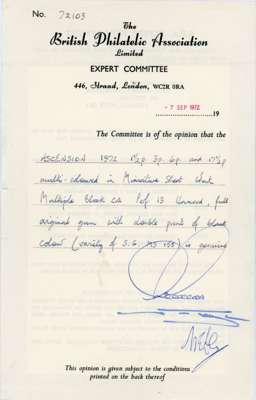 No. 72103
The
British Philatelic Association
Limited
EXPERT COMMITTEE
446, Strand, London, WC2R 0RA
- 7 SEP 1972
19
The Committee is of the opinion that the
ASCENSION 1972 1½p 3p 6p and 17½p
multi-coloured in Miniature Sheet Wmk
Multiple Block CA Perf 13 Unused, full
original gum with double print of black
colour (variety of S.G. MS 155) is genuine
This opinion is given subject to the conditions
printed on the back thereof